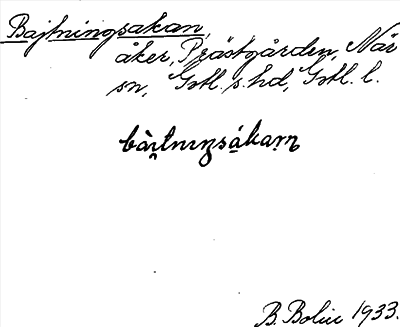 Bajtningsakan,
åker, Prästgården, När
sn, Gotl. s. hd, Gotl. l.
bài̯tnıŋsákaṃ
B. Bolin 1933.